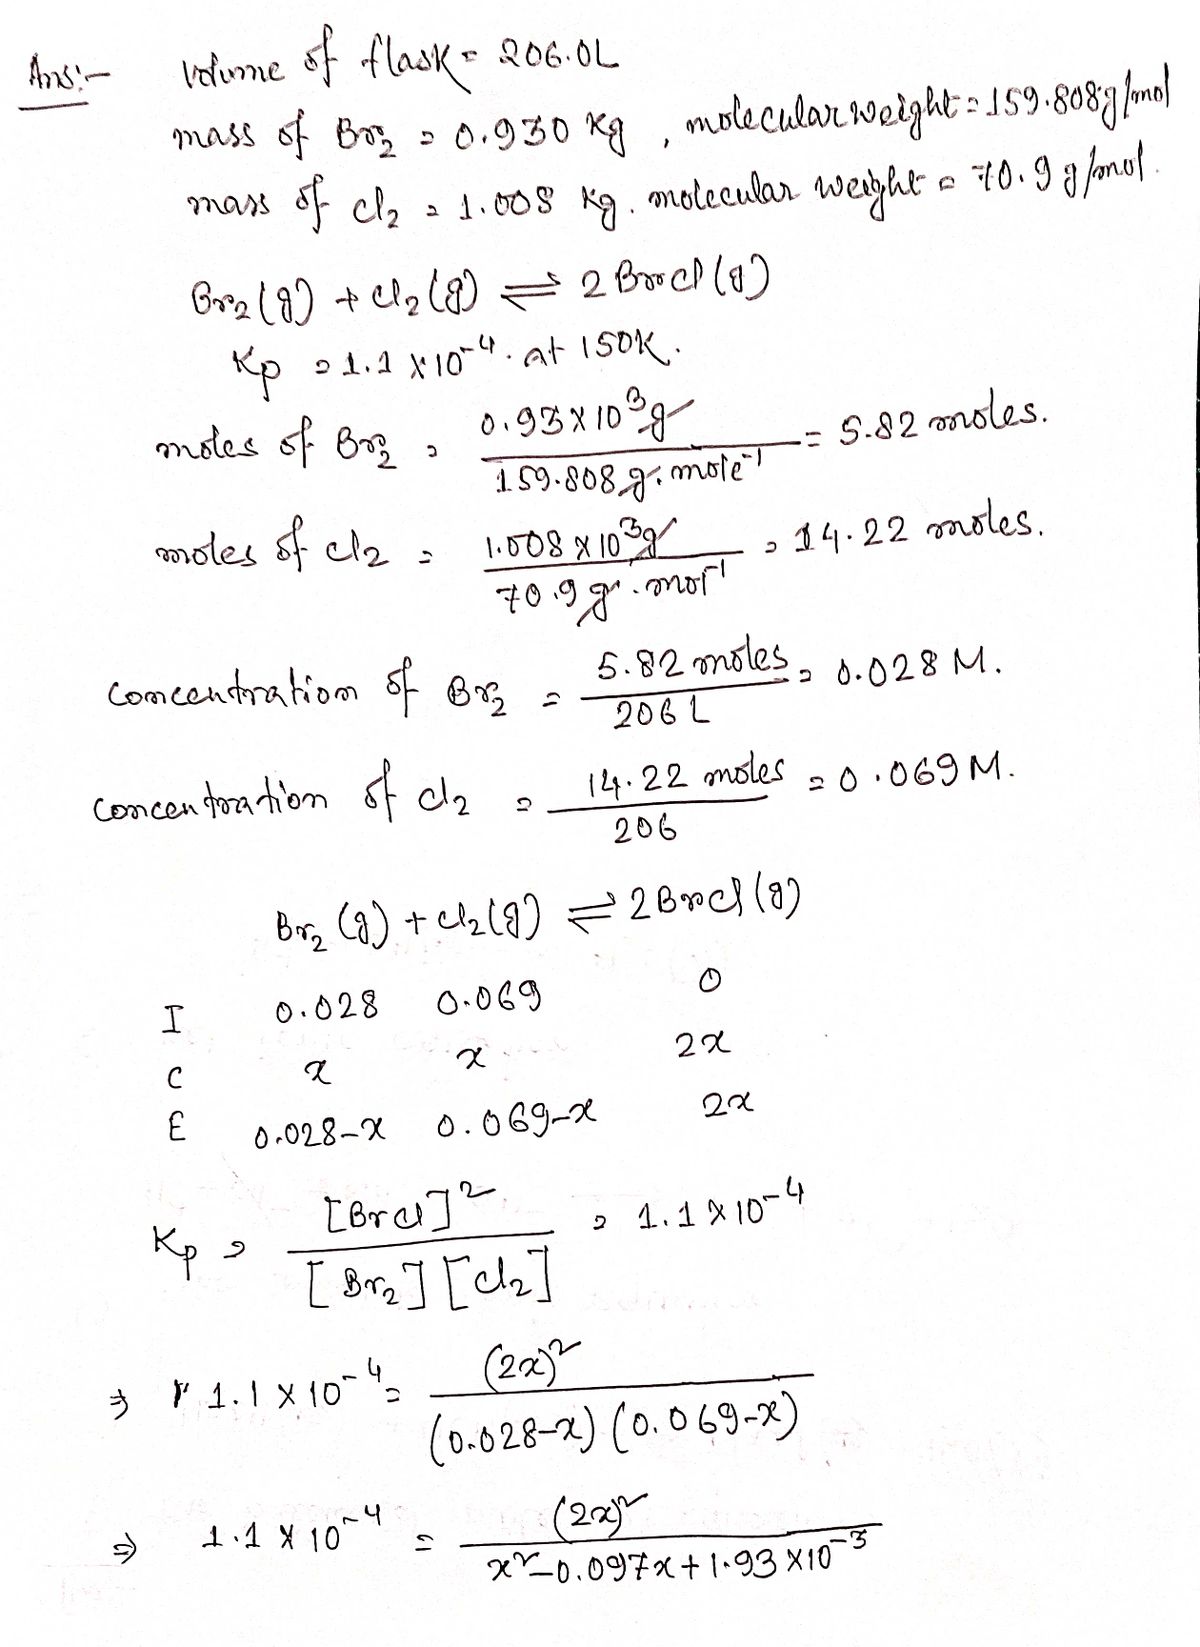 Ans:- Volume of flask = 206.0L
mass of Br2 = 0.930 kg, molecular weight = 159.808g/mol
mass of Cl2 = 1.008 kg. molecular weight = 70.9 g/mol.
Br2(g) + Cl2(g) ⇌ 2BrCl(g)
Kp = 1.1 × 10^-4 . at 150K.
moles of Br2 = 0.93×10^3 g / 159.808 g. mole^-1 = 5.82 moles.
moles of Cl2 = 1.008 × 10^3 g / 70.9 g. mol^-1 = 14.22 moles.
Concentration of Br2 = 5.82 moles / 206 L = 0.028 M.
Concentration of Cl2 = 14.22 moles / 206 = 0.069 M.
Br2(g) + Cl2(g) ⇌ 2BrCl(g)
I 0.028 0.069 0
C x x 2x
E 0.028-x 0.069-x 2x
Kp = [BrCl]^2 / [Br2][Cl2] = 1.1 × 10^-4
⇒ 1.1 × 10^-4 = (2x)^2 / (0.028-x)(0.069-x)
⇒ 1.1 × 10^-4 = (2x)^2 / x^2-0.097x+1.93×10^-3